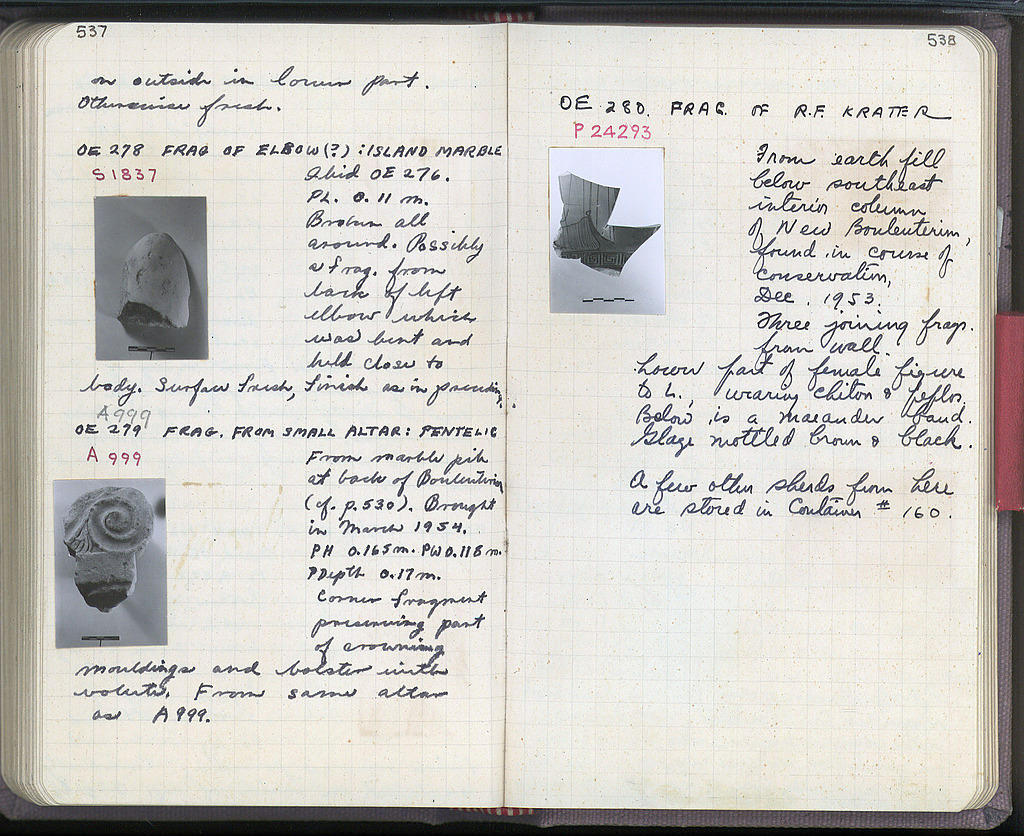 537
on outside in lower part.
Otherwise fresh.
OE 278 FRAG OF ELBOW(?) : ISLAND MARBLE
S 1837
Ibid OE 276.
PL. 0.11 m.
Broken all
around. Possibly
a frag. from
back of left
elbow which
was bent and
held close to
body. Surface fresh, finish as in preceding.
A999
OE 279 FRAG. FROM SMALL ALTAR: PENTELIC
A 999
From marble pile
at back of Bouleuterion
(cf. p.530). Brought
in March 1954.
PH 0.165 m. PW 0.118 m.
PDepth 0.17 m.
Corner fragment
preserving part
of crowning
mouldings and bolster with
volute. From same altar
as A 999.
538
OE 280. FRAG. OF R.F. KRATER
P 24293
From earth fill
below southeast
interior column
of New Bouleuterion,
found in course of
conservation,
Dec. 1953.
Three joining frags.
from wall.
Lower part of female figure
to L., wearing chiton & peplos.
Below is a maeander band.
Glaze mottled brown & black.
A few other sherds from here
are stored in Container # 160.